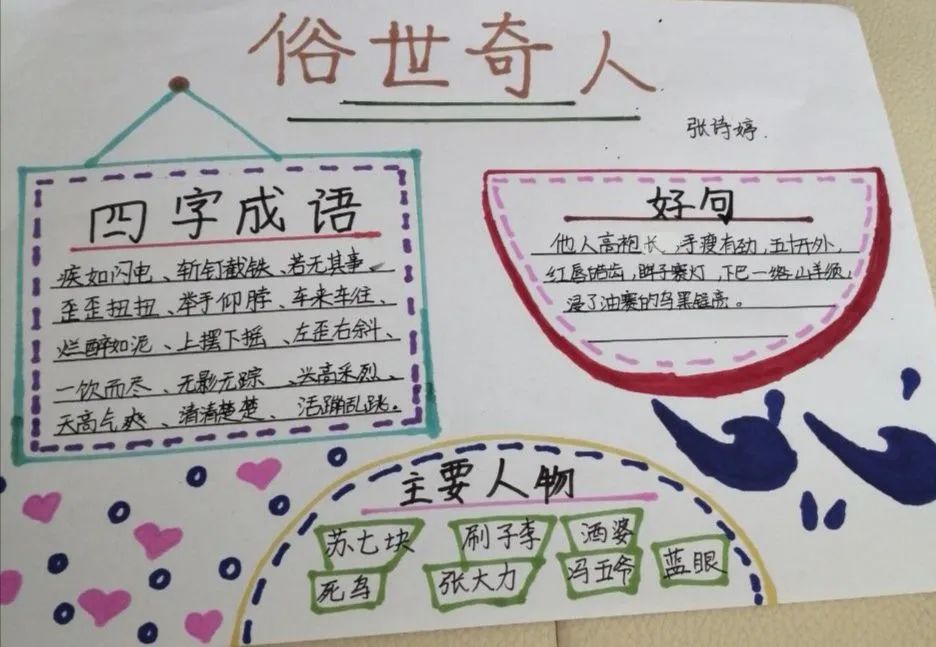 俗世奇人
张诗婷.
四字成语
疾如闪电、斩钉截铁、若无其事、
歪歪扭扭、举手仰脖、车来车往、
烂醉如泥、上摆下摇、左歪右斜、
一饮而尽、无影无踪、兴高采烈、
天高气爽、清清楚楚、活蹦乱跳。
好句
他人高袍长,手瘦有劲,五十开外,
红唇皓齿,眸子赛灯,下巴一绺山羊须,
浸了油赛的乌黑锃亮。
主要人物
苏七块 刷子李 酒婆
死鸟 张大力 冯五爷 蓝眼